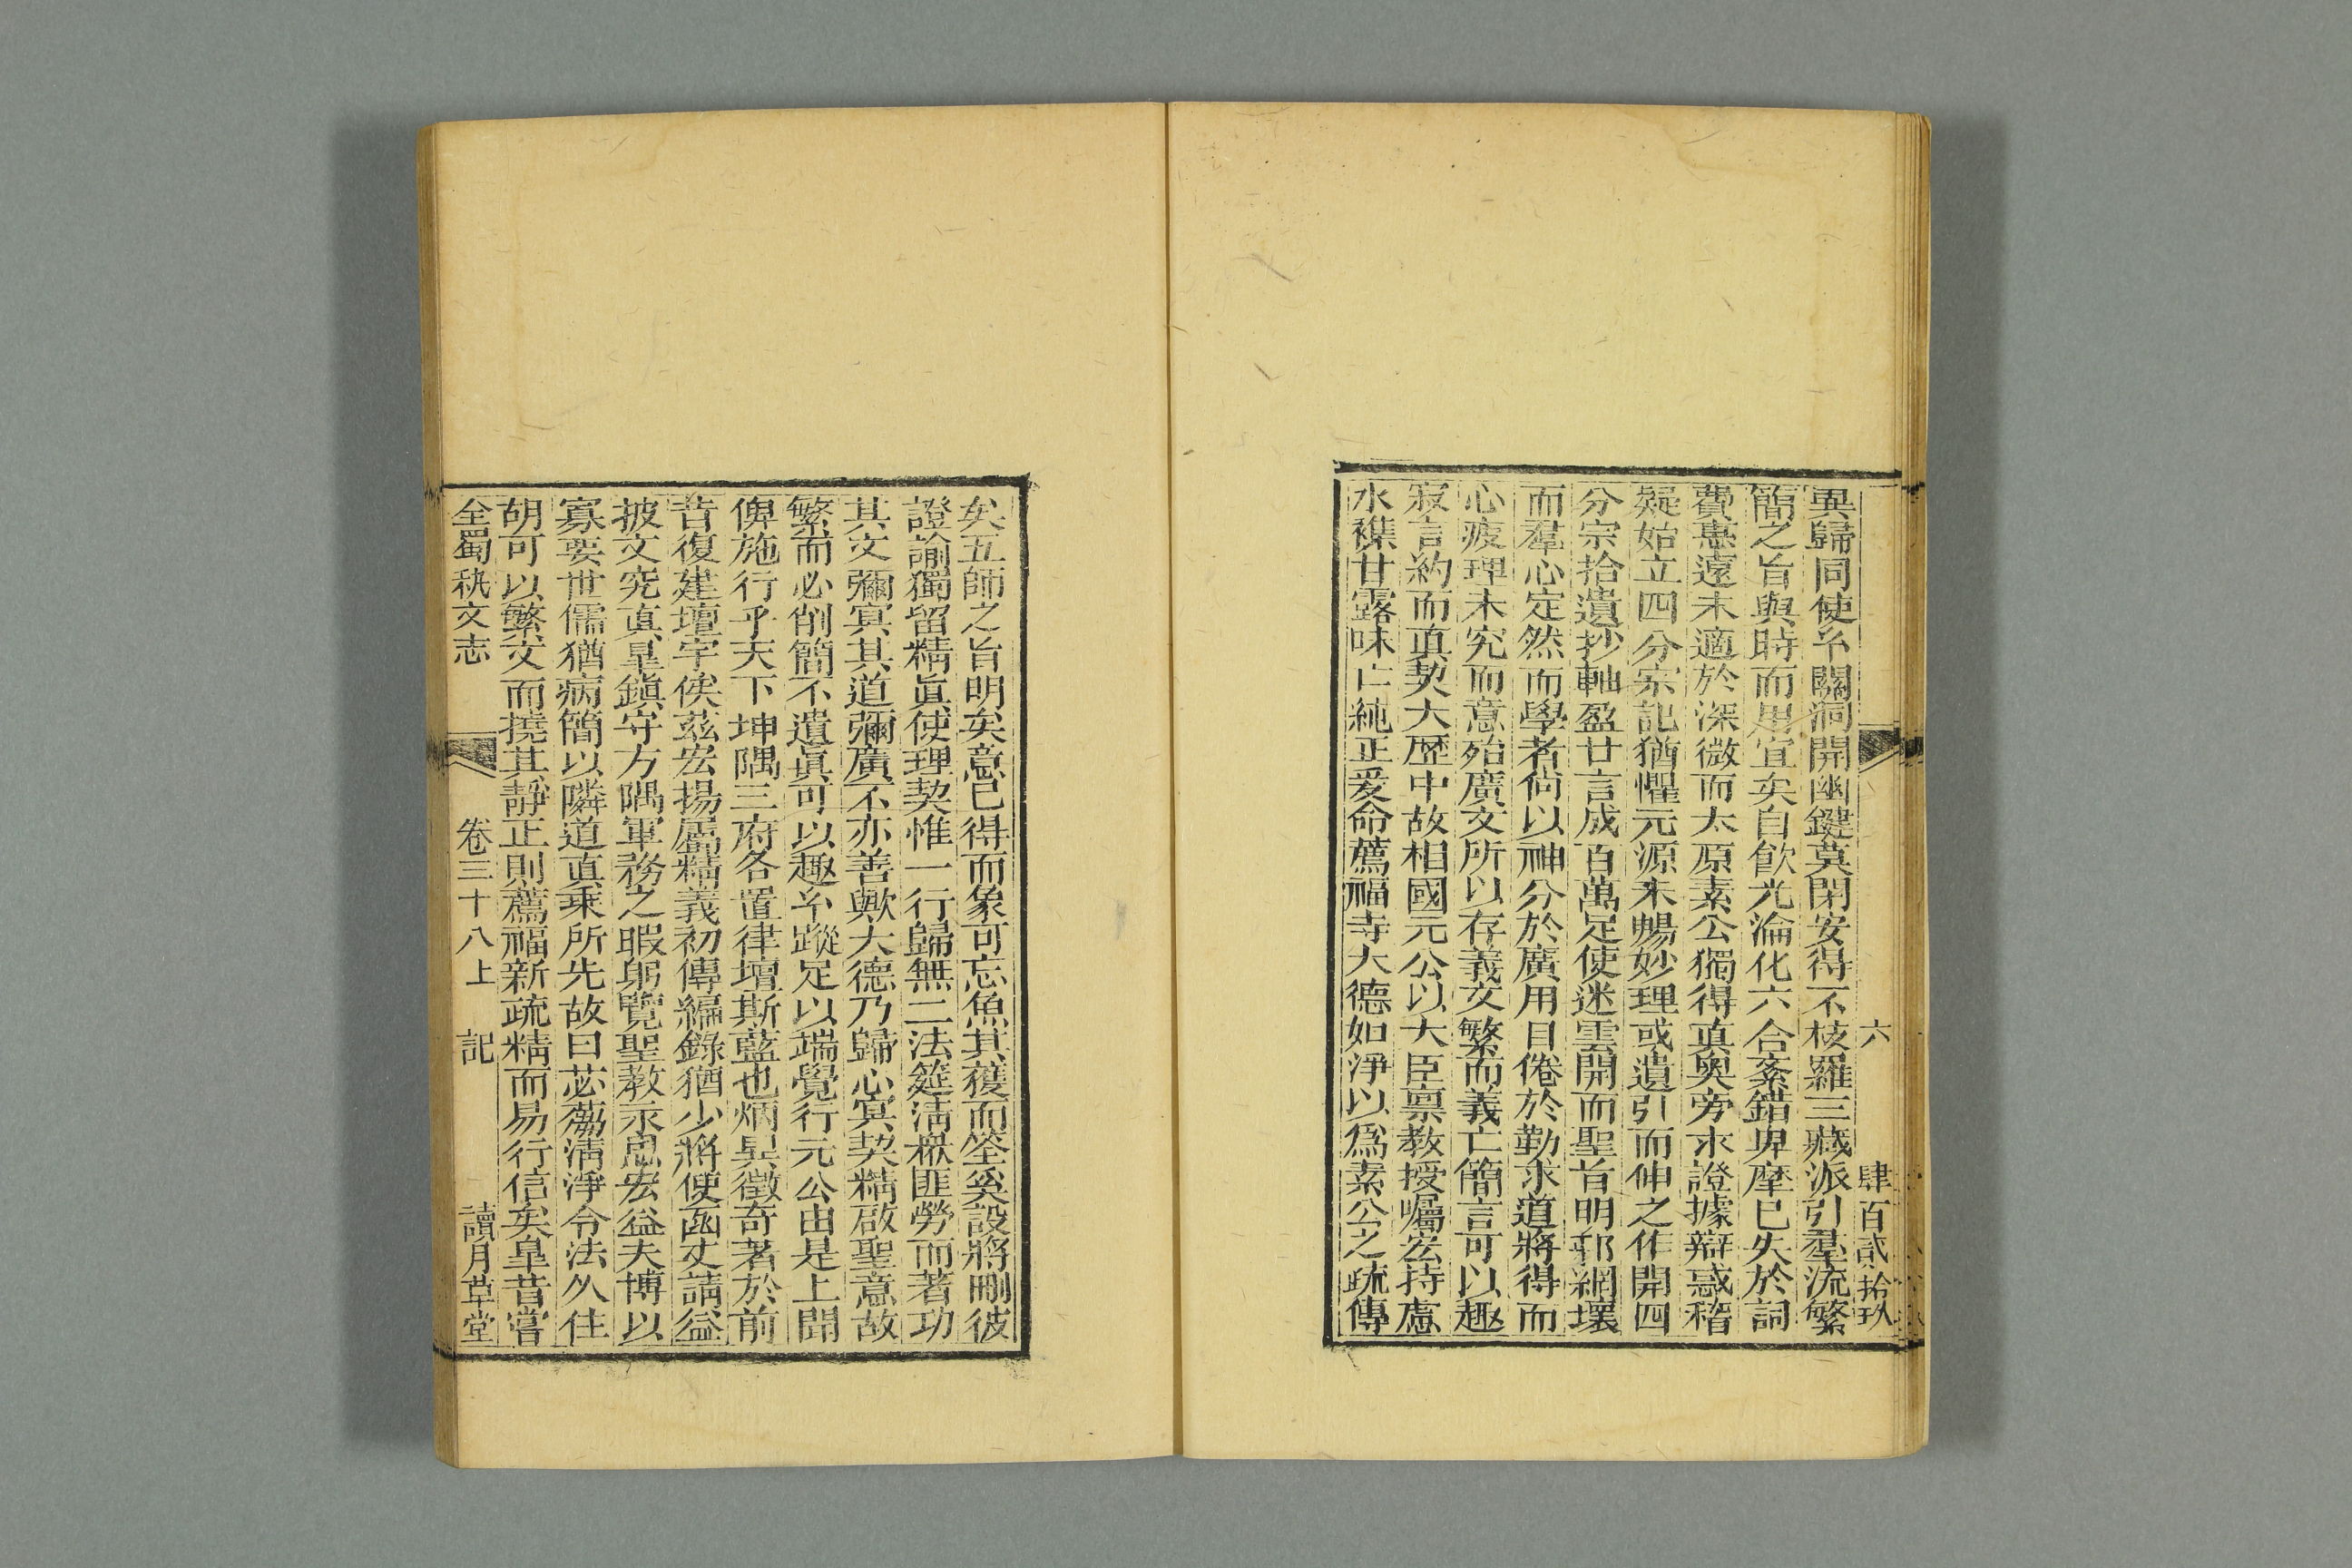 六　肆百貳拾玖
異歸同使糸關洞開幽鍵莫閉安得不枝羅三藏派引羣流繁
簡之旨與時而思宜矣自飮光淪化六合紊錯卑摩已失於詞
費惠遠未適於深微而太原素公獨得真奧旁求證據辯惑稽
疑始立四分宗記猶懼元源未暢妙理或遺引而伸之作開四
分宗拾遺抄軸盈廿言成百萬足使迷雲開而聖旨明邪網壞
而羣心定然而學者倘以神分於廣用目倦於勤求道將得而
心疲理未究而意殆廣文所以存義文繁而義亡簡言可以趣
寂言約而真契大歷中故相國元公以大臣禀教授囑宏持慮
水襍甘露味亡純正爰命薦福寺大德如淨以爲素公之疏傳
矣五師之旨明矣意已得而象可忘魚其獲而筌奚設將刪彼
證諭獨留精眞使理契惟一行歸無二法筵淸褫匪勞而著功
其文彌寡其道彌廣不亦善歟大德乃歸心冥契精啟聖意故
繁而必削簡不遺眞可以趣糸蹤足以端覺行元公由是上聞
俾施行乎天下坤隅三府各置律壇斯藍也炳異徵奇著於前
昔復建壇宇俟茲宏揚屬精義初傳編錄猶少將使函丈請益
披文究真臯鎭守方隅軍務之暇躬覽聖教永思宏益夫博以
寡要世儒猶病簡以隣道真乘所先故曰苾蒭淸淨令法久住
胡可以繁文而撓其靜正則薦福新疏精而易行信矣臯昔嘗
全蜀秇文志　卷三十八上　記　讀月草堂